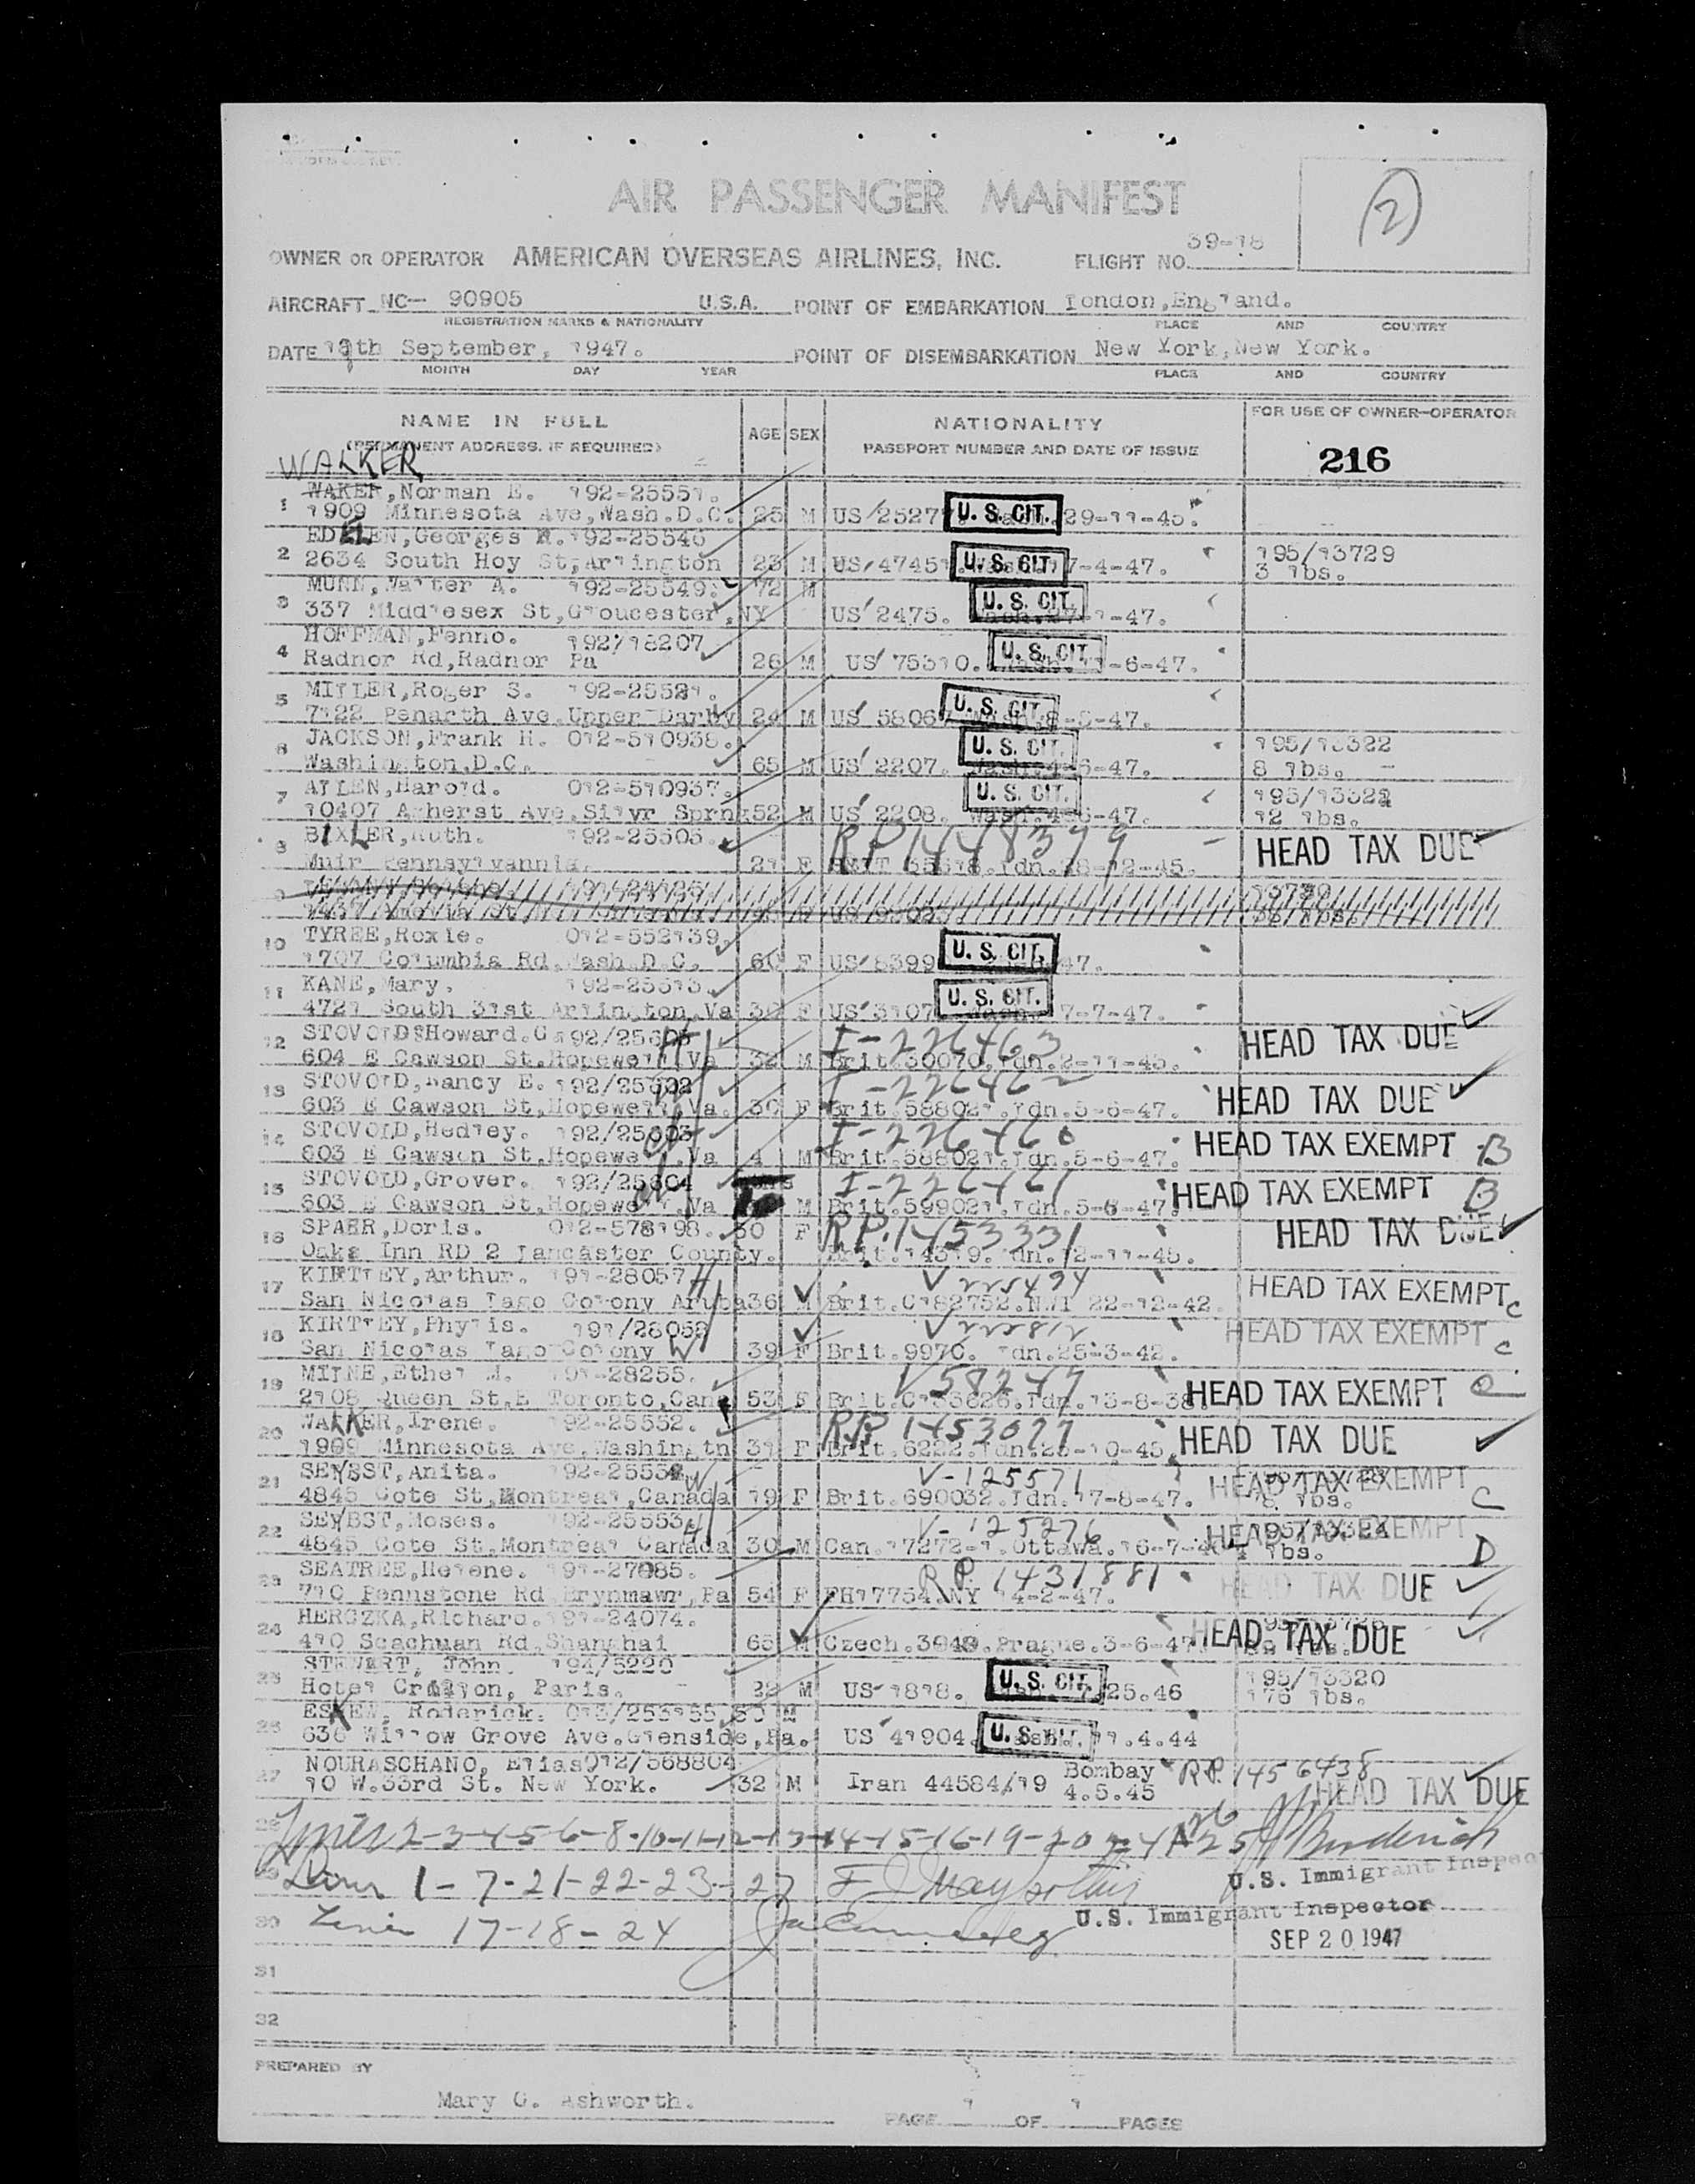 AIR PASSENGER MANIFEST
(2)
OWNER OR OPERATOR AMERICAN OVERSEAS AIRLINES, INC. FLIGHT NO. 39-18
AIRCRAFT NC- 90905 U.S.A. POINT OF EMBARKATION London, England.
REGISTRATION MARKS & NATIONALITY PLACE AND COUNTRY
DATE September, 1947. POINT OF DISEMBARKATION New York, New York.
MONTH DAY YEAR PLACE AND COUNTRY
NAME IN FULL AGE SEX NATIONALITY FOR USE OF OWNER-OPERATOR
(PERMANENT ADDRESS, IF REQUIRED) PASSPORT NUMBER AND DATE OF ISSUE 216
WALKER
1 WAKER, Norman E. 192-25551.
1909 Minnesota Ave, Wash. D.C. 25 M US 2527 U. S. CIT. 29-11-45.
Georges 192-25546
2 2634 South Hoy St, Arlington 23 M US 4745 U. S. CIT. 7-4-47. 195/13729
3 lbs.
MUNN, Walter A. 192-25549. 72 M
3 337 Middlesex St, Gloucester, NY US 2475. U. S. CIT. -47.
HOFFMAN, Fenno. 192/18207
4 Radnor Rd, Radnor Pa 26 M US 75310. U. S. CIT. -6-47.
5 MILLER, Roger S.
7122 Penarth Ave. Upper Darby 24 M US 5806 U. S. CIT. -47.
6 JACKSON, Frank H. 012-510938.
Washington, D.C. 65 M US 2207. U. S. CIT. -47. 195/13322
8 lbs.
7 ALLEN, Harold. 012-510937.
10407 Amherst Ave. Silvr Sprng 52 M US 2208. U. S. CIT. Wash. -47.
12 lbs.
8 BIXLER, Ruth. 192-25505. RP 1448379 HEAD TAX DUE
Muir Pennsylvannia. 21 F Ldn. -12-45.
9
10 TYREE, Roxie. 012-552139.
1707 Columbia Rd, Wash. D.C. 60 F US 8399 U. S. CIT. 47.
11 KANE, Mary. 192-25513.
4721 South 31st Arlington, Va F US 3107 U. S. CIT. 7-7-47.
12 STOVOLD, Howard. G I-226463 HEAD TAX DUE
604 E Cawson St. Hopewell, Va 32 M Brit. 30070. Ldn. 2-11-45.
13 STOVOLD, Nancy E. I-226462 HEAD TAX DUE
603 E Cawson St, Hopewell, Va. 30 F Brit. 588021. Ldn. 5-6-47.
14 STOVOLD, Hedley. 192/25603 I-226460 HEAD TAX EXEMPT B
603 E Cawson St. Hopewell, Va 4 M Brit. 588021. Ldn. 5-6-47.
15 STOVOLD, Grover. 192/25604 I-226461 HEAD TAX EXEMPT B
603 E Cawson St. Hopewell, Va M Brit. 599021. Ldn. 5-6-47.
16 SPAER, Doris. 012-578198. 30 F RP. 1453331 HEAD TAX DUE
Oaks Inn RD 2 Lancaster County. Brit. 14519. Ldn. 12-11-45.
17 KIRTLEY, Arthur. 191-28057 V 225494 HEAD TAX EXEMPT C
San Nicolas Lago Colony Aruba 36 M Brit. C182752. NWI 22-12-42.
18 KIRTLEY, Phyllis. 191/28058 V 222812 HEAD TAX EXEMPT C
San Nicolas Lago Colony 39 F Brit. 9970. Ldn. 25-3-42.
19 MILNE, Ethel M. 191-28255. V 58247 HEAD TAX EXEMPT C
2108 Queen St. E Toronto, Can 53 F Brit. Ldn. 13-8-38.
20 WALKER, Irene. 192-25552. RP. 1453077 HEAD TAX DUE
1909 Minnesota Ave, Washingtn 31 F Brit. 6222. Ldn. 26-10-45.
21 SEYBST, Anita. V-125571 HEAD TAX EXEMPT C
4845 Cote St, Montreal, Canada 19 F Brit. 690032. Ldn. 17-8-47. lbs.
22 SEYBST, Moses. 192-25553 V-125276 HEAD TAX EXEMPT D
4845 Cote St. Montreal Canada 30 M Can. 17272-1. Ottawa. 16-7- lbs.
23 SEATREE, Helene. 191-27085. R.P. 1431881 HEAD TAX DUE
710 Pennstone Rd Brynmawr, Pa 54 F FH17754. NY 14-2-47.
24 HERCZKA, Richard. 191-24074. HEAD TAX DUE
410 Scachuan Rd, Shanghai 65 M Czech. 3949. Prague. 3-6-47.
25 STEWART, John. 194/5220 195/13320
Hotel Crillon, Paris. M US 1818. U. S. CIT. 25.46 176 lbs.
26 ESKEW, Roderick. 013/253155 50 M
630 Willow Grove Ave. Glenside, Pa. US 41904. U. S. CIT. 11.4.44
27 NOURASCHANO, Elias 012/568804 Bombay R.P. 1456438
10 W. 33rd St. New York. 32 M Iran 44584/19 4.5.45 HEAD TAX DUE
28 Lines 2-3-4-5-6-8-10-11-12-13-14-15-16-19-20 25 26
29 Lines 1-7-21-22-23-27 U.S. Immigrant Inspector
30 Lines 17-18-24 U.S. Immigrant Inspector
SEP 20 1947
31
32
PREPARED BY
Mary G. Ashworth.
PAGE 1 OF 1 PAGES